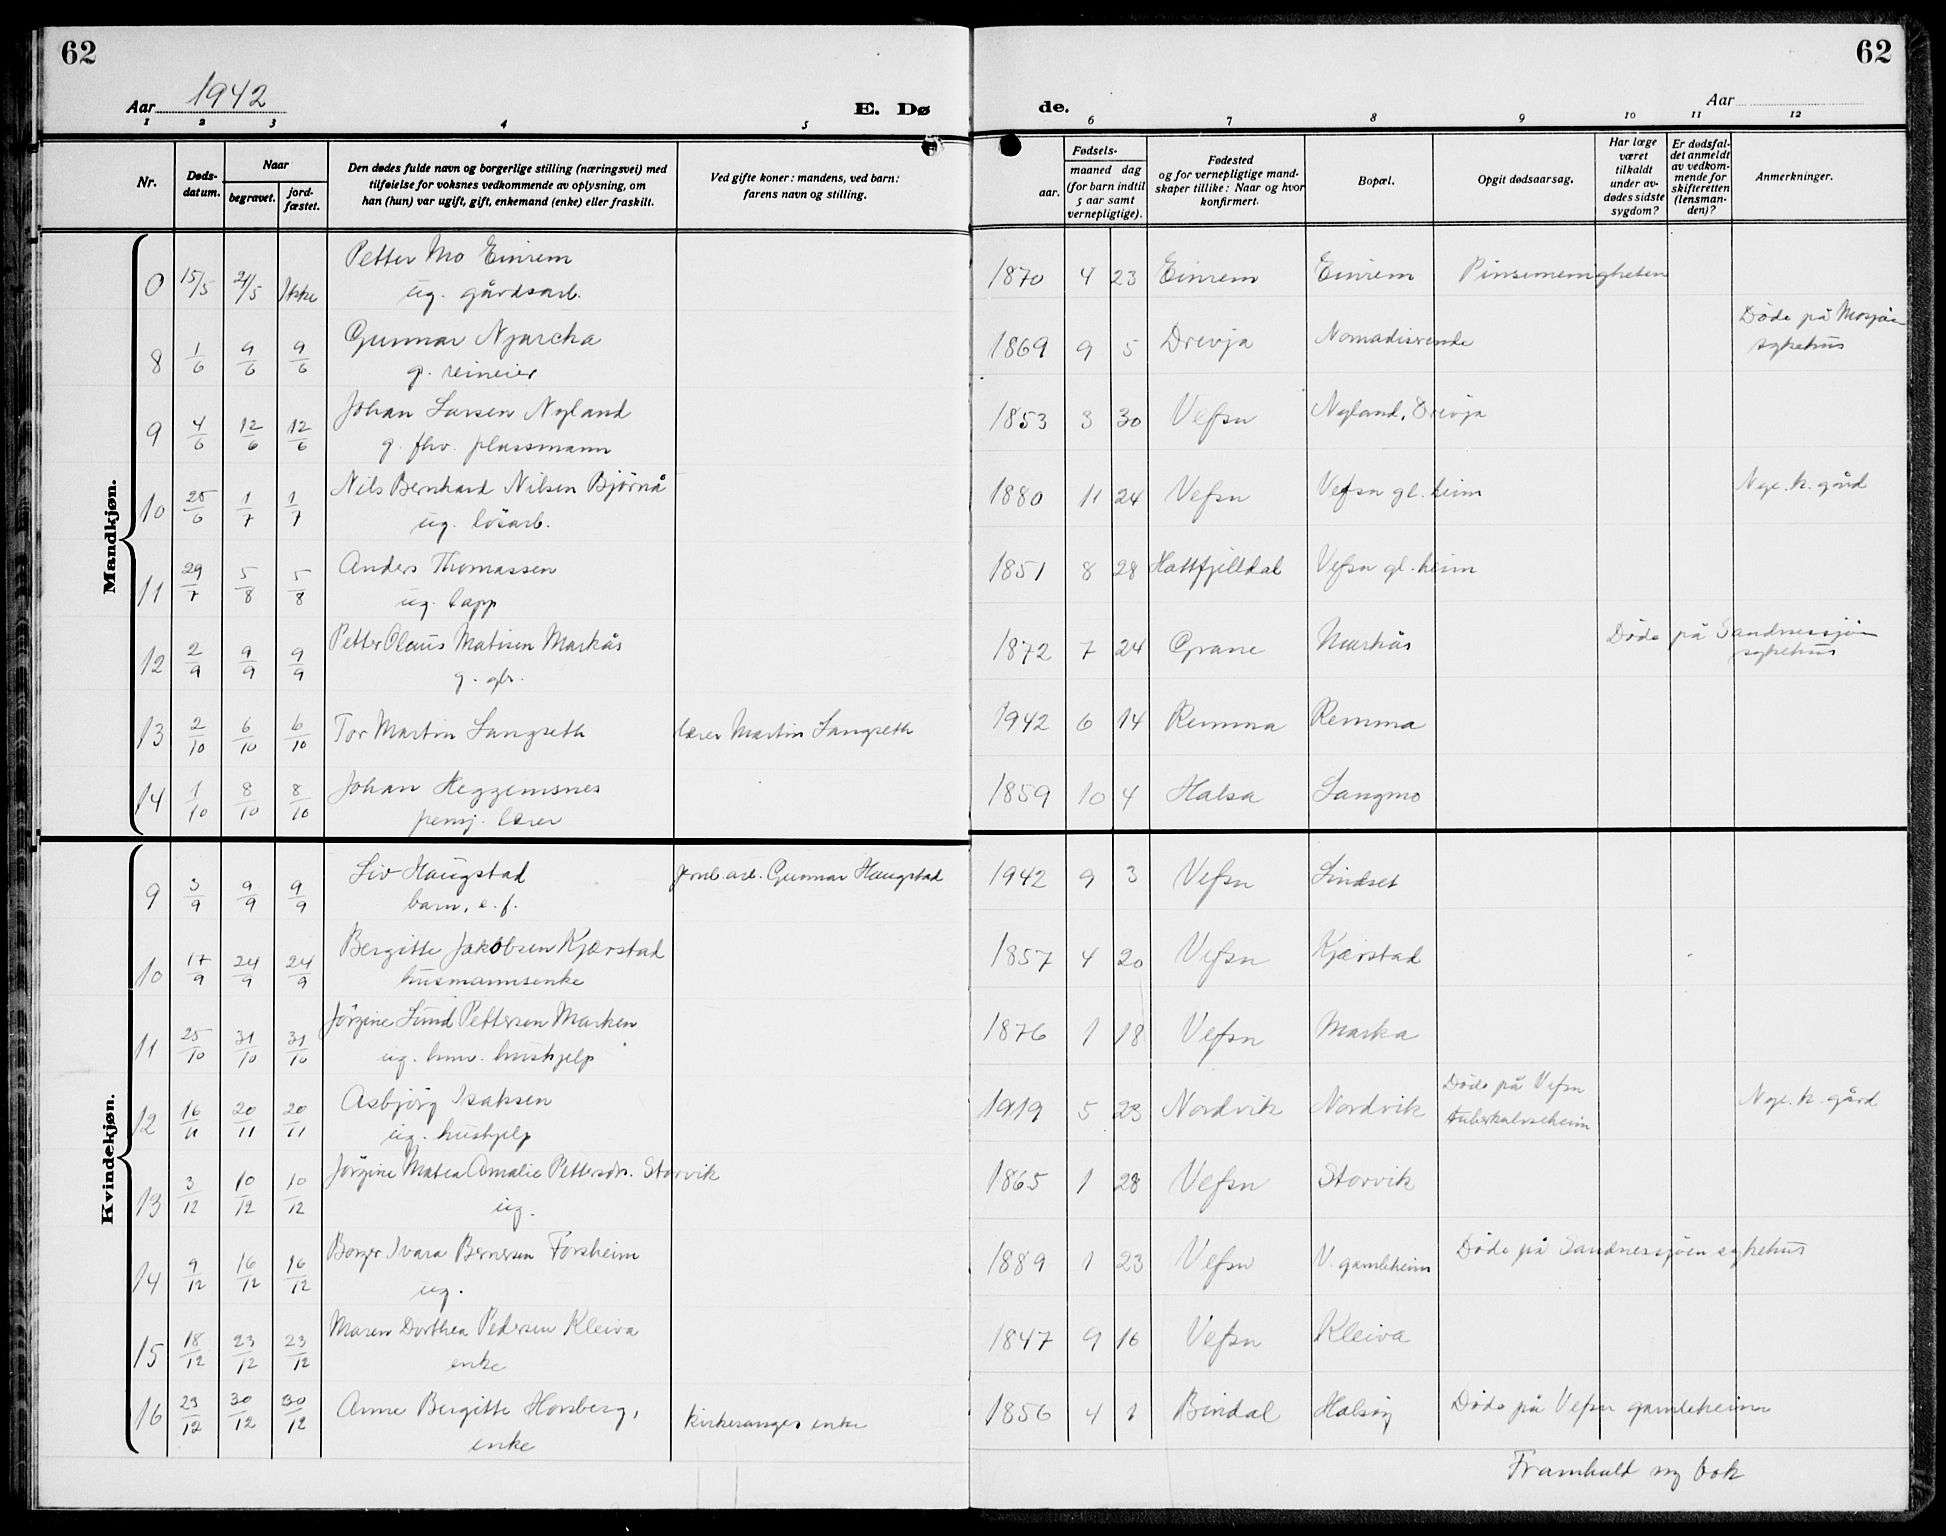 62
62
Aar 1942
E. Dø
de.
Aar
1 2 3 4 5 6 7 8 9 10 11 12
Nr.
Døds-
datum.
Naar
begravet.
jord-
fæstet.
Den dødes fulde navn og borgerlige stilling (næringsvei) med
tilføielse for voksnes vedkommende av oplysning, om
han (hun) var ugift, gift, enkemand (enke) eller fraskilt.
Ved gifte koner: mandens, ved barn:
farens navn og stilling.
Fødsels-
aar.
maaned dag
(for barn indtil
5 aar samt
vernepligtige).
Fødested
og for vernepligtige mand-
skaper tillike: Naar og hvor
konfirmert.
Bopæl.
Opgit dødsaarsag.
Har læge
været
tilkaldt
under av-
dødes sidste
sygdom?
Er dødsfal-
det anmeldt
av vedkom-
mende for
skifteretten
(lensman-
den)?
Anmerkninger.
Mandkjøn.
0 15/5 21/5 Ikke Petter Mo Einrem 1870 4 23 Einrem Einrem Pinsemenigheten
ug. gårdsarb.
8 1/6 9/6 9/6 Gunnar Njarcka 1869 9 5 Drevja Nomadiserende Døde på Mosjøen
g. reineier sykehus
9 4/6 12/6 12/6 Johan Larsen Nyland 1853 3 30 Vefsn Nyland, Drevja
g. fhv. plassmann
10 25/6 1/7 1/7 Nils Bernhard Nilsen Bjørnå 1880 11 24 Vefsn Vefsn gl. heim Nye k. gård
ug. løsarb.
11 29/7 5/8 5/8 Anders Thomassen 1851 8 28 Hattfjelldal Vefsn gl. heim
ug. lapp
12 2/9 9/9 9/9 Petter Claus Matisen Markås 1872 7 24 Grane Markås Døde på Sandnessjøen
g. gbr. sykehus
13 2/10 6/10 6/10 Tor Martin Langseth lærer Martin Langseth 1942 6 14 Remma Remma
14 1/10 8/10 8/10 Johan Heggemsnes 1859 10 4 Halsa Langmo
pensj. lærer
Kvindekjøn.
9 3/9 9/9 9/9 Liv Haugstad jernb.arb. Gunnar Haugstad 1942 9 3 Vefsn Lindset
barn, e. f.
10 17/9 24/9 24/9 Bergitte Jakobsen Kjærstad 1857 4 20 Vefsn Kjærstad
husmannsenke
11 25/10 31/10 31/10 Jørgine Lund Pettersen Marken 1876 1 18 Vefsn Marka
ug. hushjelp
12 16/11 20/11 20/11 Asbjørg Isaksen 1919 5 23 Nordvik Nordvik Døde på Vefsn Nye. k. gård
ug. hushjelp tuberkuloseheim
13 3/12 10/12 10/12 Jørgine Matea Amalie Pettersdr. Storvik 1865 1 28 Vefsn Storvik
ug.
14 9/12 16/12 16/12 Borger Ivara Bernersen Forsheim 1889 1 23 Vefsn V. gamleheim Døde på Sandnessjøen sykehus
ug.
15 18/12 23/12 23/12 Maren Dorthea Pedersen Kleiva 1847 9 16 Vefsn Kleiva
enke
16 23/12 30/12 30/12 Anne Bergitte Horsberg, kirkesanger enke 1856 4 1 Bindal Halsøy Døde på Vefsn gamleheim
enke
Framhald ny bok